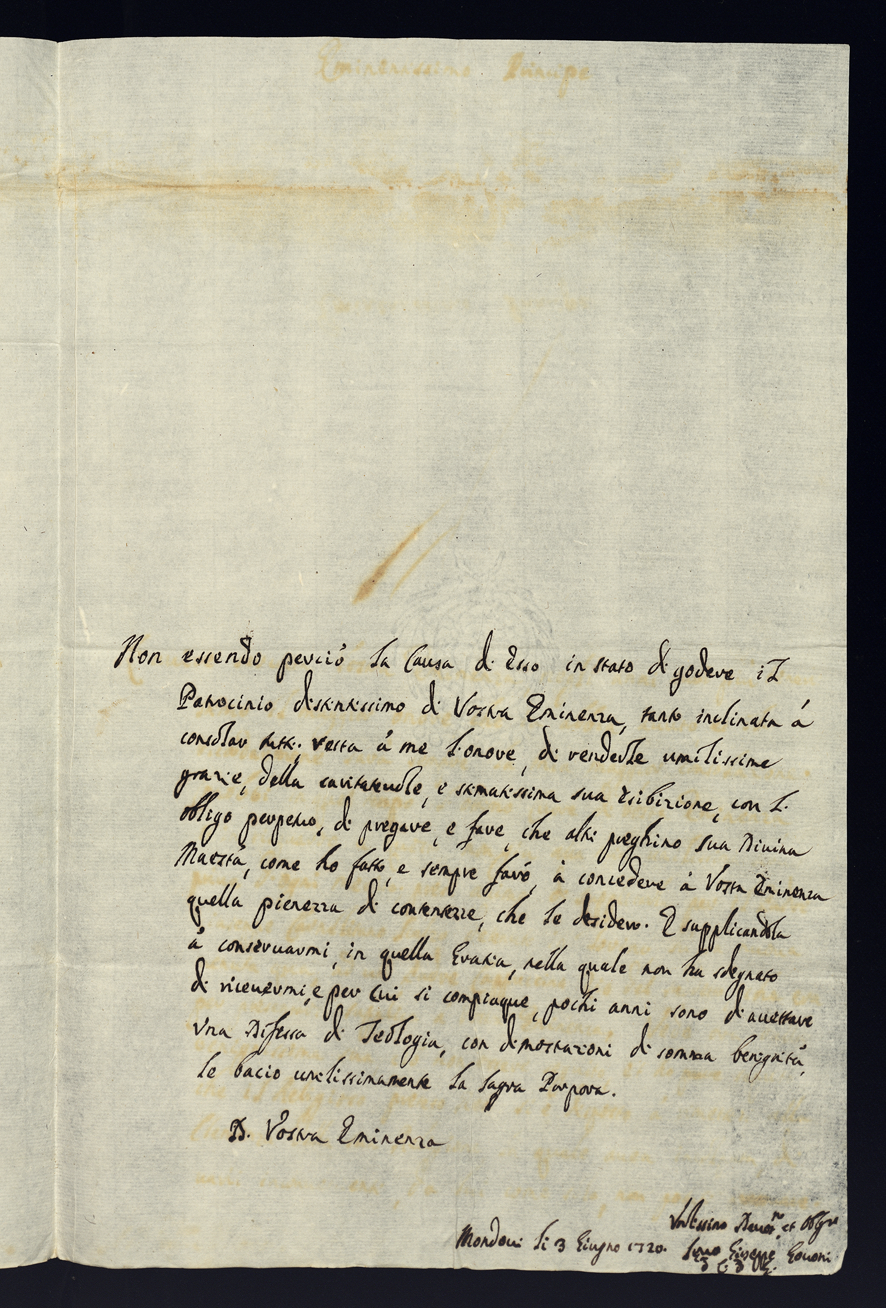 Non essendo perciò la Causa di Esso in stato di godere il
Patrocinio distintissimo di Vostra Eminenza, tanto inclinata à
consolar tutti; resta à me l'onore, di renderle umilissime
grazie, della caritatevole, e stimatissima sua Esibizione, con l'
obligo perpetuo, di pregare, e fare, che altri preghino Sua Divina
Maestà, come ho fatto, e sempre farò, à concedere à Vostra Eminenza
quella pienezza di contentezze, che le desidero. E supplicandola
à conservarmi, in quella Grazia, nella quale non ha sdegnato
di ricevermi, e per cui si compiaque, pochi anni sono d'accettare
Una Difesa di Teologia, con dimostrazioni di somma benignità,
le bacio umilissimamente la Sagra Porpora.
D. Vostra Eminenza
Umilissimo Devot.mo et Obl.mo
Mondovì li 3 Giugno 1720. Servo Giuseppe